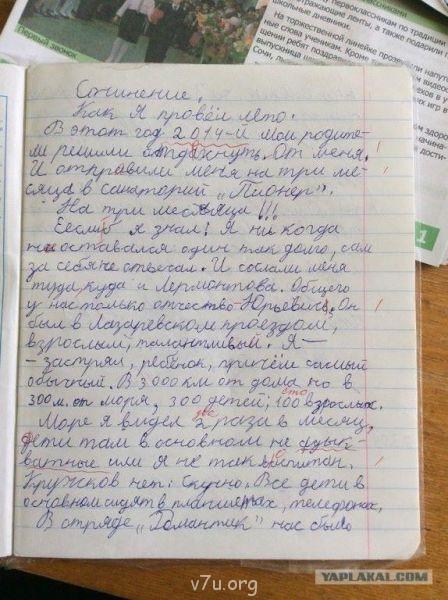 Первый звонок
классниками
Первоклассникам по традиции
отражающие ленты, а также подарили
школьные дневники.
На торжественной линейке прозвучали напут
ные слова ученикам. Кроме
щении ребят поздрав
выпускница шк
Сочи,
1
Сочинение.
Как я провёл лето.
В этот год 2014-й мои родите-
ли решили отдохнуть. От меня.
И отправили меня на три ме-
сяца в санаторий „Пионер".
На три месяца!!!
Еслиб я знал! Я ни когда
не оставался один так долго, сам
за себя не отвечал. И сослали меня
туда, куда и Лермонтова. Общего
у нас только отчество-Юрьевич. Он
был в Лазаревском проездом,
взрослым, талантливый. Я—
- застрял, ребёнок, причём самый
обычный. В 3000 км от дома но в
300 м. от моря, 300 детей, 100 взрослых.
сто
Море я видел 2 раза в месяц,
две
дети там в основном не адык-
ватные или я не так воспитан.
Кружков нет. Скучно. Все дети в
основном сидят в планшетах, телефонах.
В отряде „Романтик" нас было
v7u.org
YAPLAKAL.COM